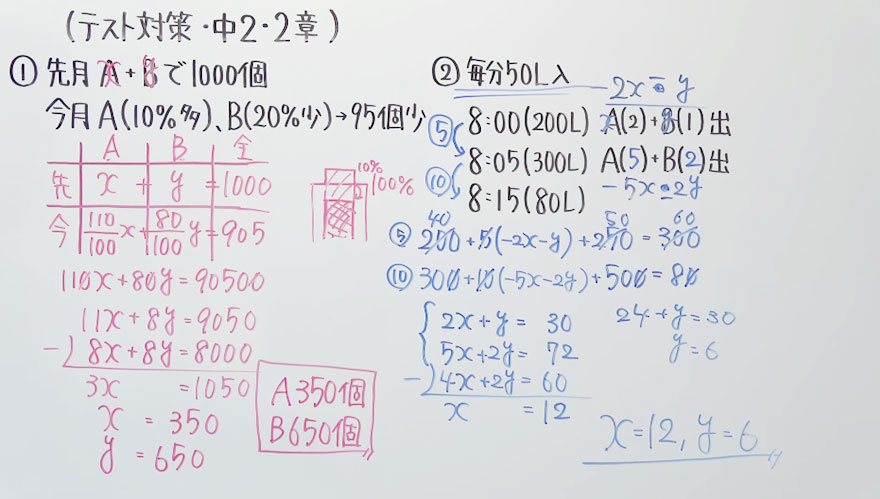 (テスト対策・中2・2章)
① 先月 A + B で1000個
今月 A(10%多)、B(20%少)→95個少
A B 全
先 x + y = 1000
今 110/100 x + 80/100 y = 905
10%
100%
110x + 80y = 90500
11x + 8y = 9050
-) 8x + 8y = 8000
3x = 1050
x = 350
y = 650
A350個
B650個
② 毎分50L入
-2x - y
⑤ 8:00(200L) A(2)+B(1)出
8:05(300L) A(5)+B(2)出
⑩ -5x-2y
8:15(80L)
40 50 60
⑤ 200+5(-2x-y)+250=300
⑩ 300+10(-5x-2y)+500=80
2x+y= 30
5x+2y= 72
-) 4x+2y= 60
x =12
24+y=30
y=6
x=12, y=6